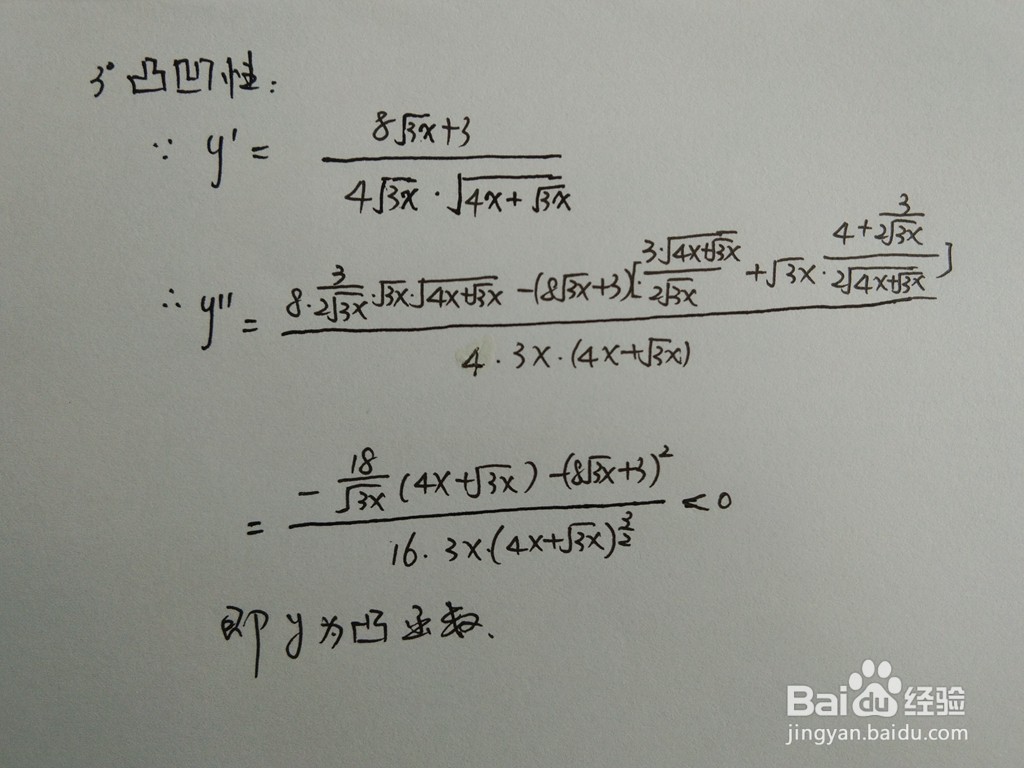 3° 凸凹性：
∵ y' = (8√3x+3) / (4√3x · √(4x+√3x))
∴ y'' = (8·3/(2√3x)·√3x·√(4x+√3x) -(8√3x+3)[·3·√(4x+√3x)/(2√3x) +√3x·(4+3/(2√3x))/(2√(4x+√3x))]) / (4·3x·(4x+√3x))
= (-18/√3x (4x+√3x) -(8√3x+3)²) / (16·3x·(4x+√3x)^(3/2)) <0
即 y 为凸函数.
Bai 经验
jingyan.baidu.com